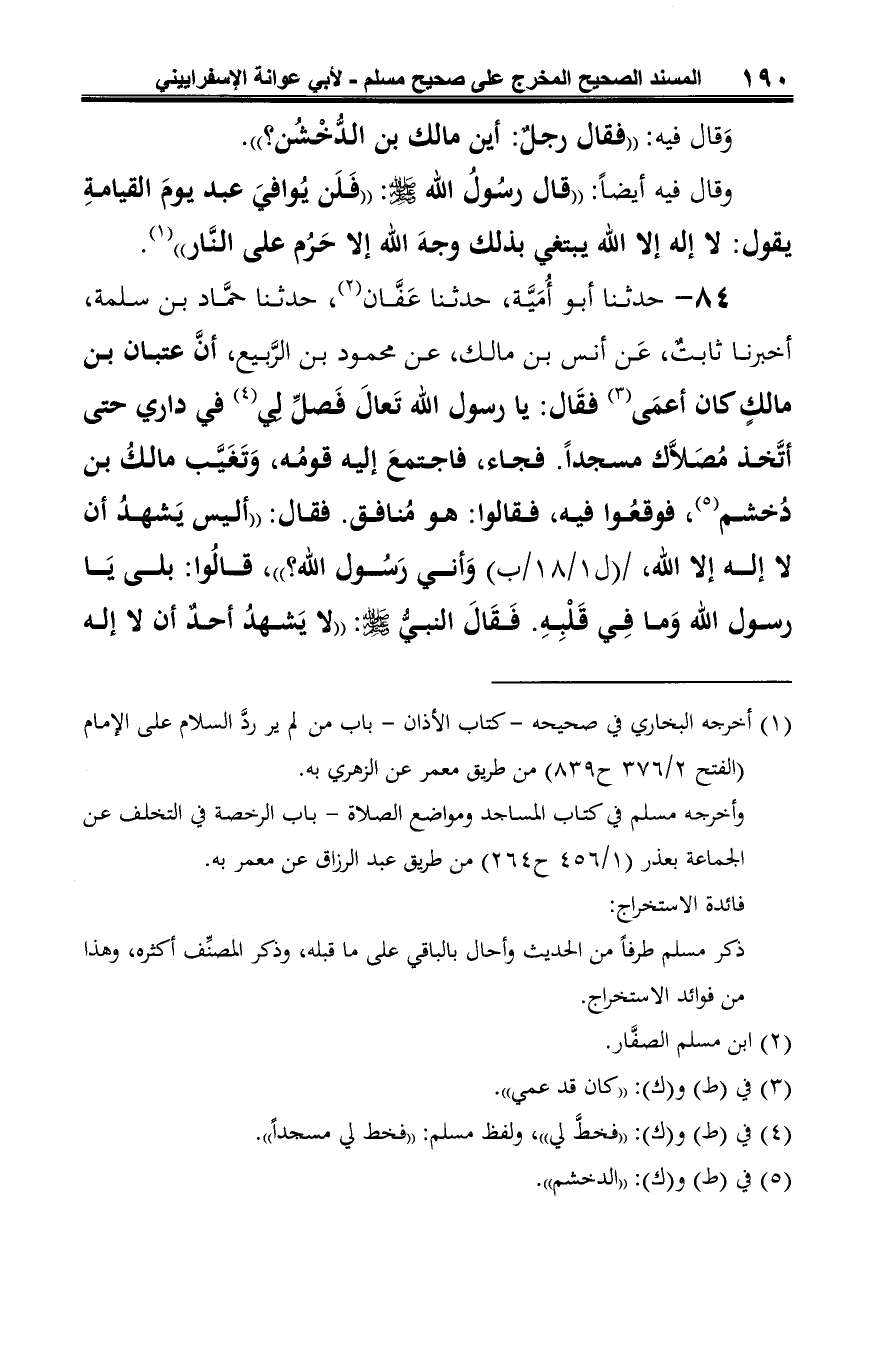 ١٩٠ المسند الصحيح المخرج على صحيح مسلم - لأبي عوانة الإسفراييني
وَقال فيه: ((فقال رجلٌ: أين مالك بن الدُّخْشُن؟)).
وقال فيه أيضاً: ((قال رسُولُ الله ﷺ: ((فَلَن يُوافيَ عبد يومَ القيامةِ
يقول: لا إله إلا الله يبتغي بذلك وجهَ الله إلا حَرُم على النَّار))(١).
٨٤- حدثنا أبو أُمَيَّة، حدثنا عَفَّان(٢)، حدثنا حمَّاد بن سلمة،
أخبرنا ثابتٌ، عَن أنس بن مالك، عن محمود بن الرَّبيع، أنَّ عتبان بن
مالكٍ كان أعمَى(٣) فقَال: يا رسول الله تَعالَ فَصلِّ لِي(٤) في داري حتى
أتَّخذ مُصَلاَّك مسجداً. فجاء، فاجتمعَ إليه قومُه، وَتَغَيَّب مالكُ بن
دُخشم(٥)، فوقعُوا فيه، فقالوا: هو مُنافق. فقال: ((أليس يَشهدُ أن
لا إله إلا الله، /(ل١/١٨/ب) وَأني رَسُول الله؟))، قالُوا: بلى يَا
رسول الله وَما فِي قَلْبِهِ. فَقَالَ النبيُّ ﷺ: ((لا يَشهدُ أحدٌ أن لا إله
(١) أخرجه البخاري في صحيحه - كتاب الأذان - باب من لم ير ردَّ السلام على الإمام
(الفتح ٣٧٦/٢ ح٨٣٩) من طريق معمر عن الزهري به.
وأخرجه مسلم في كتاب المساجد ومواضع الصلاة - باب الرخصة في التخلف عن
الجماعة بعذر (٤٥٦/١ ح٢٦٤) من طريق عبد الرزاق عن معمر به.
فائدة الاستخراج:
ذكر مسلم طرفاً من الحديث وأحال بالباقي على ما قبله، وذكر المصنِّف أكثره، وهذا
من فوائد الاستخراج.
(٢) ابن مسلم الصفَّار.
(٣) في (ط) و(ك): ((كان قد عمي)).
(٤) في (ط) و(ك): ((فخطَّ لي))، ولفظ مسلم: ((فخط لي مسجداً)).
(٥) في (ط) و(ك): ((الدخشم)).